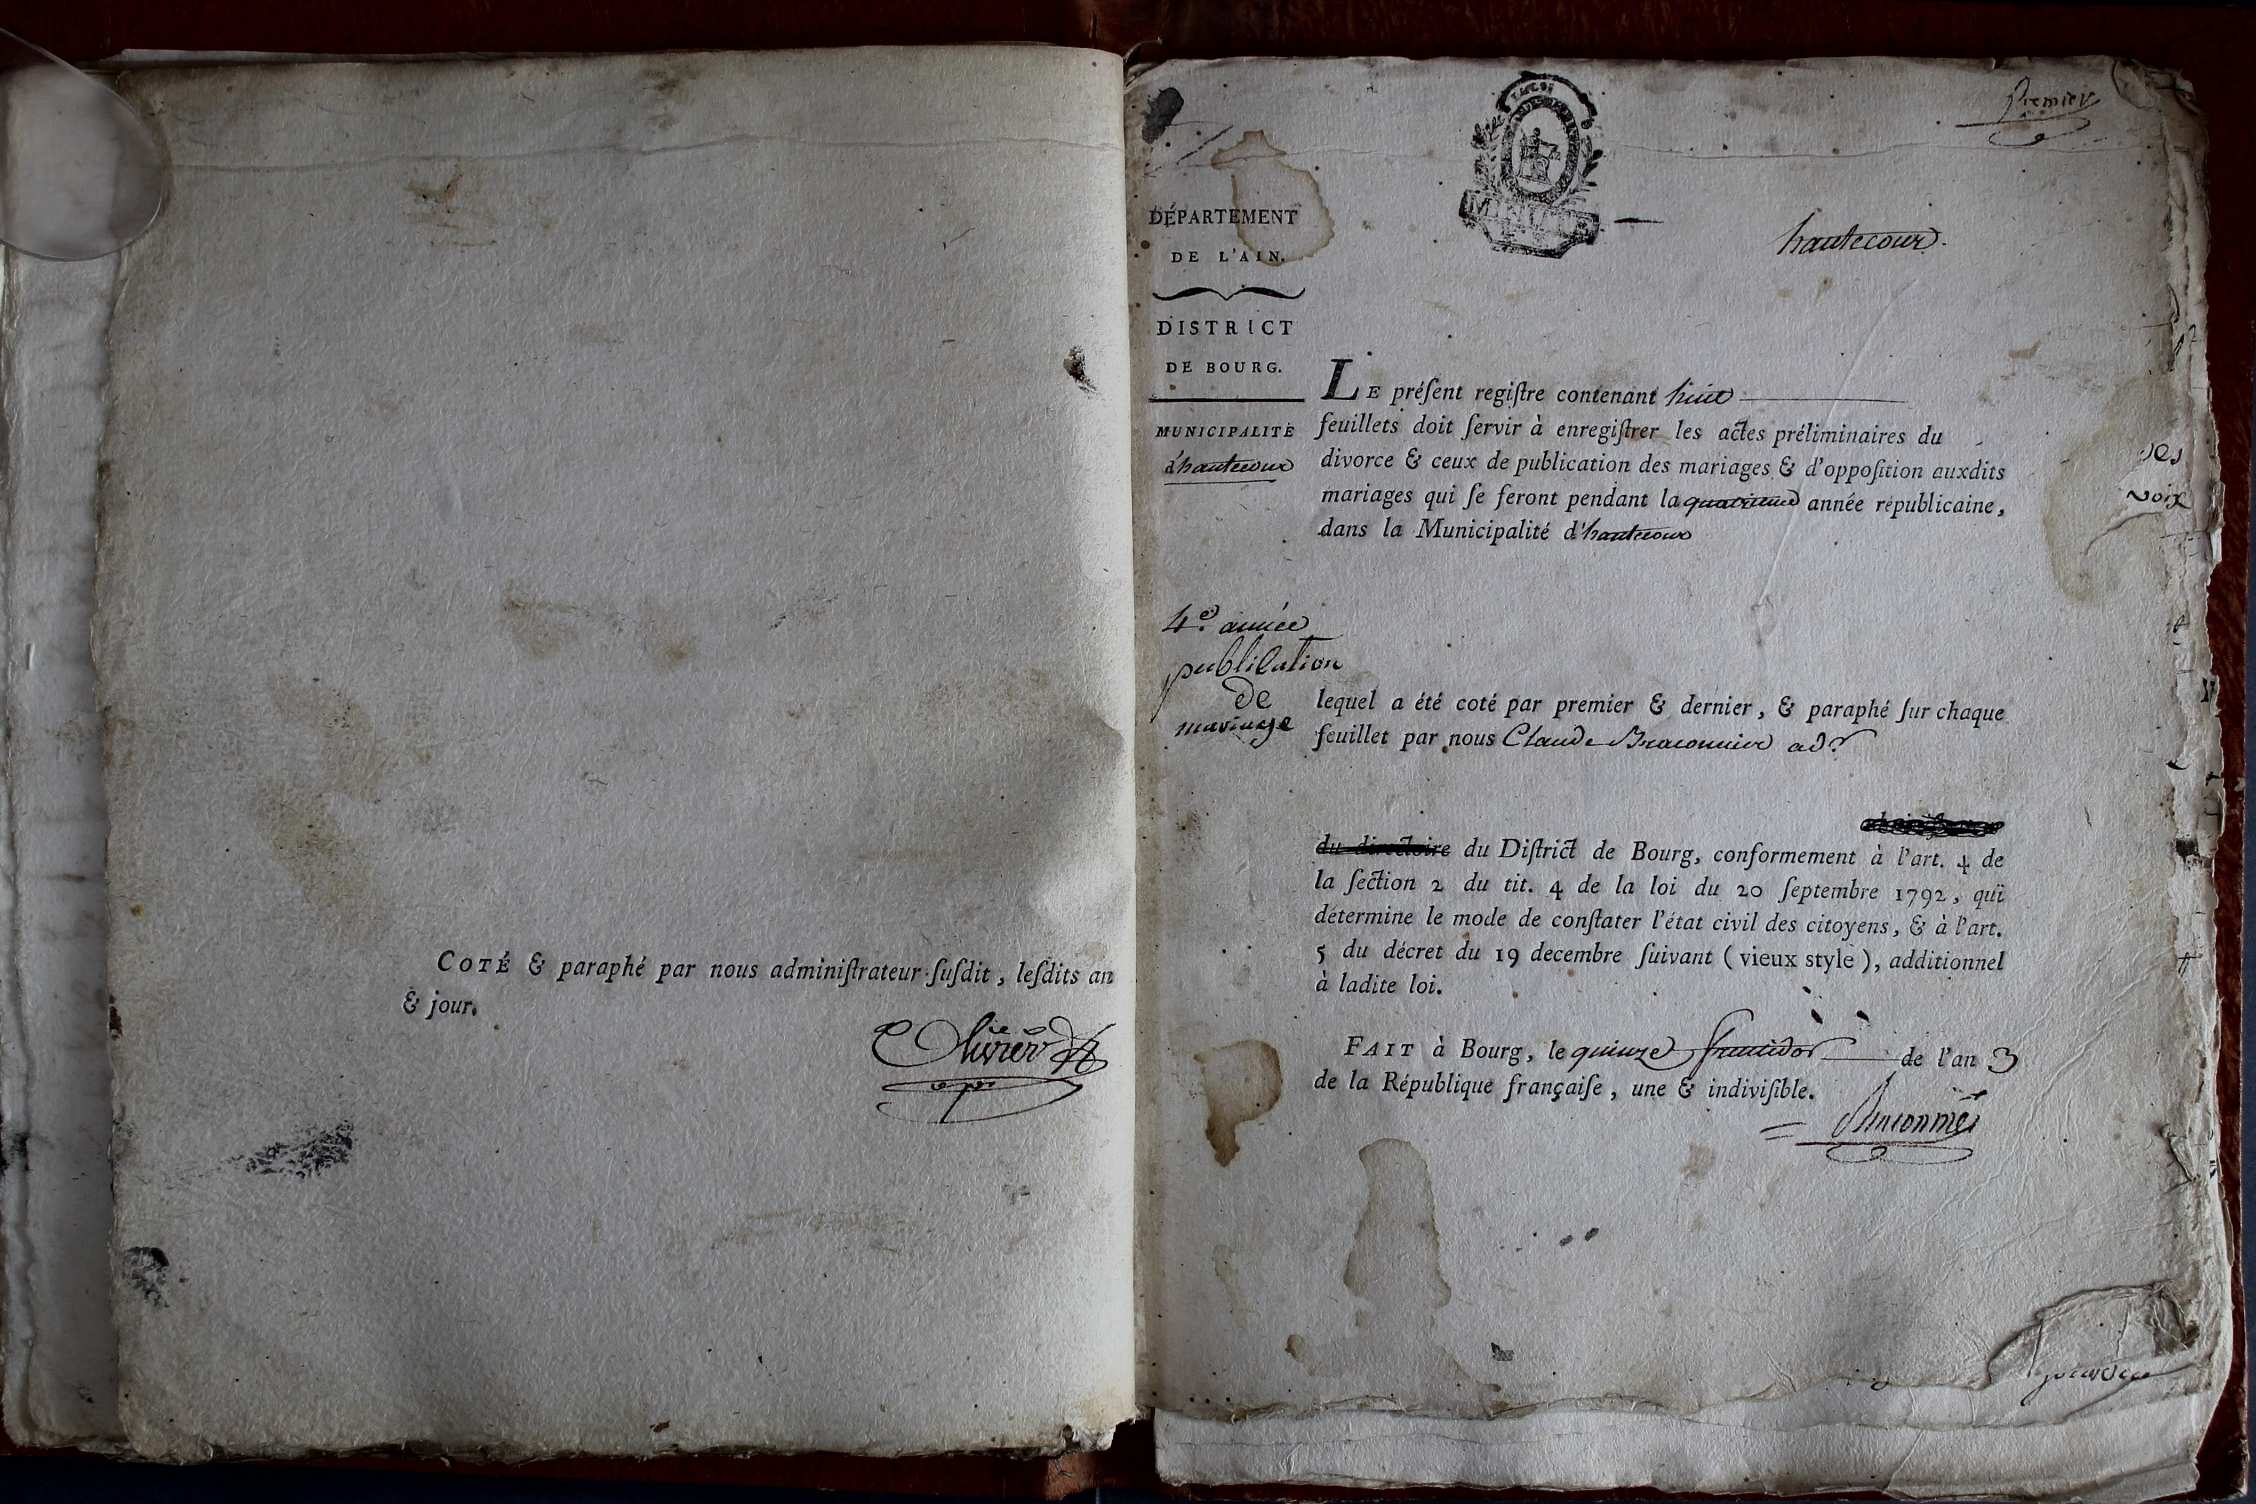 COTÉ & paraphé par nous adminiſtrateur ſuſdit, leſdits an
& jour.
Olivier
Premier
hautecour.
DÉPARTEMENT
DE L'AIN.
DISTRICT
DE BOURG.
MUNICIPALITÉ
d'hautecour
LE préſent regiſtre contenant huit
feuillets doit ſervir à enregiſtrer les actes préliminaires du
divorce & ceux de publication des mariages & d'oppoſition auxdits
mariages qui ſe feront pendant la quatrieme année républicaine,
dans la Municipalité d'hautecour
4e. année
publication
de
mariage
lequel a été coté par premier & dernier, & paraphé ſur chaque
feuillet par nous Claude Braconnier adr
du directoire du Diſtrict de Bourg, conformement à l'art. 4 de
la ſection 2 du tit. 4 de la loi du 20 ſeptembre 1792, qui
détermine le mode de conſtater l'état civil des citoyens, & à l'art.
5 du décret du 19 decembre ſuivant (vieux style), additionnel
à ladite loi.
FAIT à Bourg, le quinze fructidor de l'an 3
de la République françaiſe, une & indiviſible.
Braconnier
des
voix